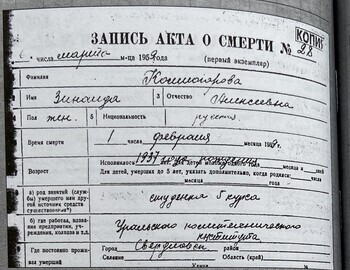 КОПИЯ
ЗАПИСЬ АКТА О СМЕРТИ № 28
числа марта м-ца 1959 года (первый экземпляр)
Фамилия Колмогорова
Имя Зинаида 3 Отчество Алексеевна
4 Пол жен. 5 Национальность русская
Время смерти 1 числа февраля месяца 1959 г.
Исполнилось 1937 года рождения месяца и дней
Возраст Для детей, умерших до 5 лет, указать дополнительно, когда родился: числа
месяца
а) род занятий (служ-
бы) умершего или дру-
гой источник средств
существования студентка 5 курса
б) где работал, назва-
ние предприятия, уч-
реждения, колхоза и т.п. Уральского политехнического
института
Где постоянно прожи-
вал умерший Город Свердловск район
Селение Область (край)
Улица